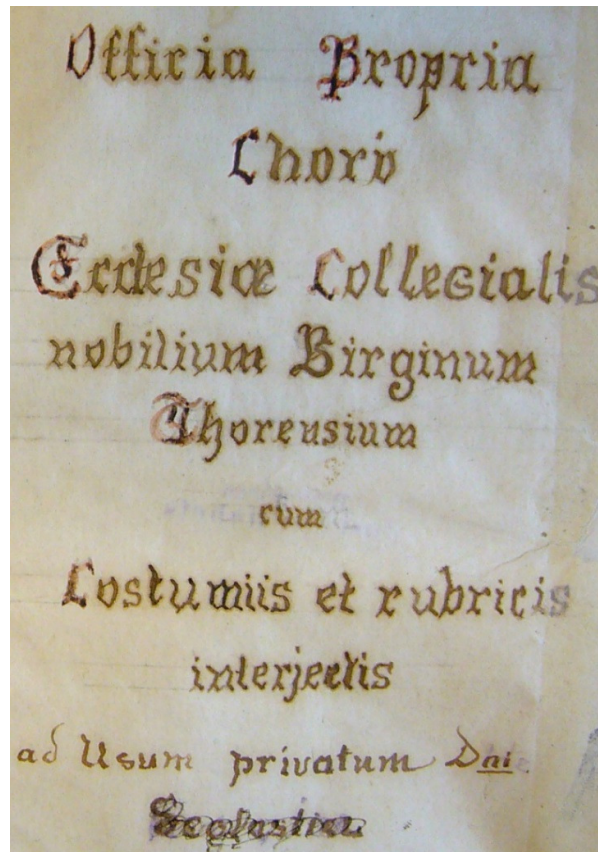 Officia Propria
Choro
Ecclesiæ Collegialis
nobilium Virginum
Thorensium
cum
Costumiis et rubricis
interjectis
ad Usum privatum Dni